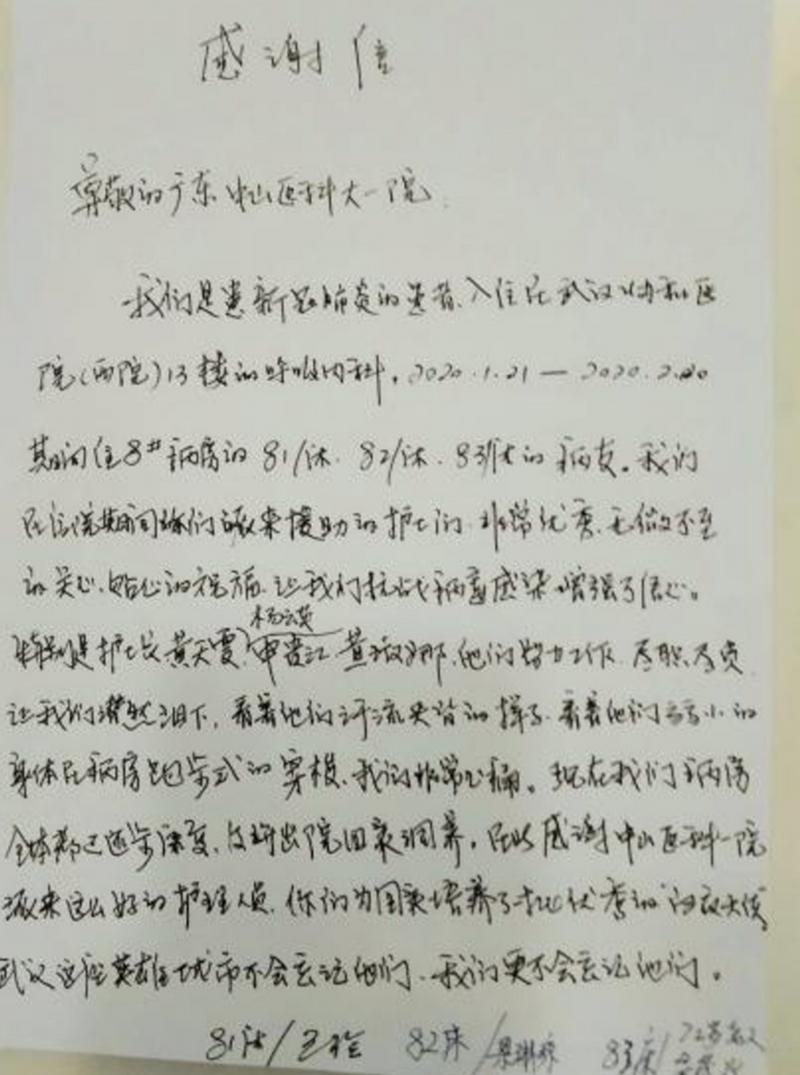 感谢信
尊敬的广东中山医科大一院
我们是患新冠肺炎的患者、入住在武汉协和医
院(西院)13楼的呼吸内科,2020.1.21—2020.2.20
期间住8#病房的81/床、82/床、83/床的病友。我们
在住院期间你们派来援助的护士们非常优秀,无微不至
的关心,贴心的祝福,让我们抗战病毒感染增强了信心。
杨云英
特别是护士长黄天雯、申贵江、黄 娜,他们努力工作,尽职尽责
让我们潸然泪下,看着他们汗流夹背的样子,看着他们 小的
身体在病房跑步式的穿梭,我们非常心痛。现在我们病房
全体都已逐步康复,及时出院回家调养,在此感谢中山医科一院
派来这么好的护理人员,你们为国家培养了批优秀的"白衣天使
武汉这座英雄城市不会忘记他们、我们更不会忘记他们。
81床/王 82床/ 83床/